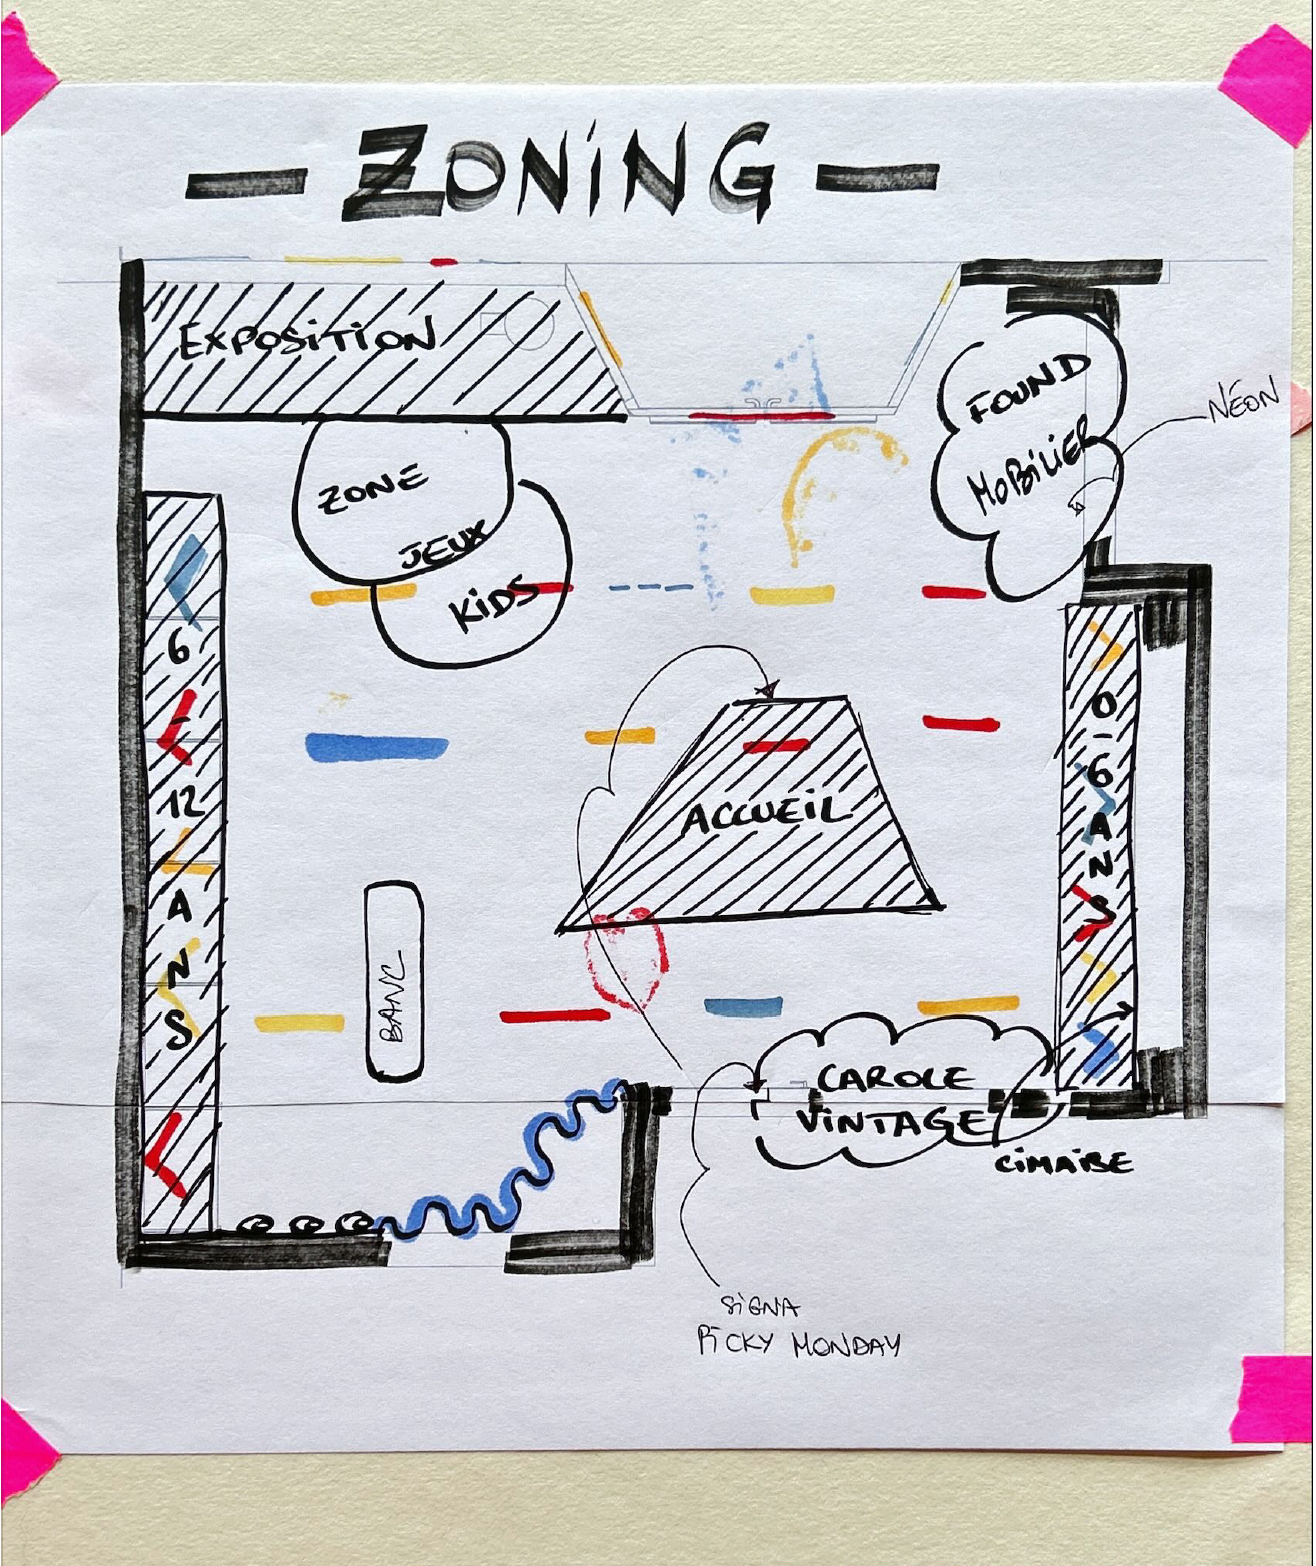 — ZONING —
EXPOSITION
FOUND
MOBILIER
NÉON
ZONE
JEUX
KIDS
6
-
12
ANS
0-6 ANS
ACCUEIL
BANC
CAROLE
VINTAGE
CIMAISE
SIGNA
PICKY MONDAY